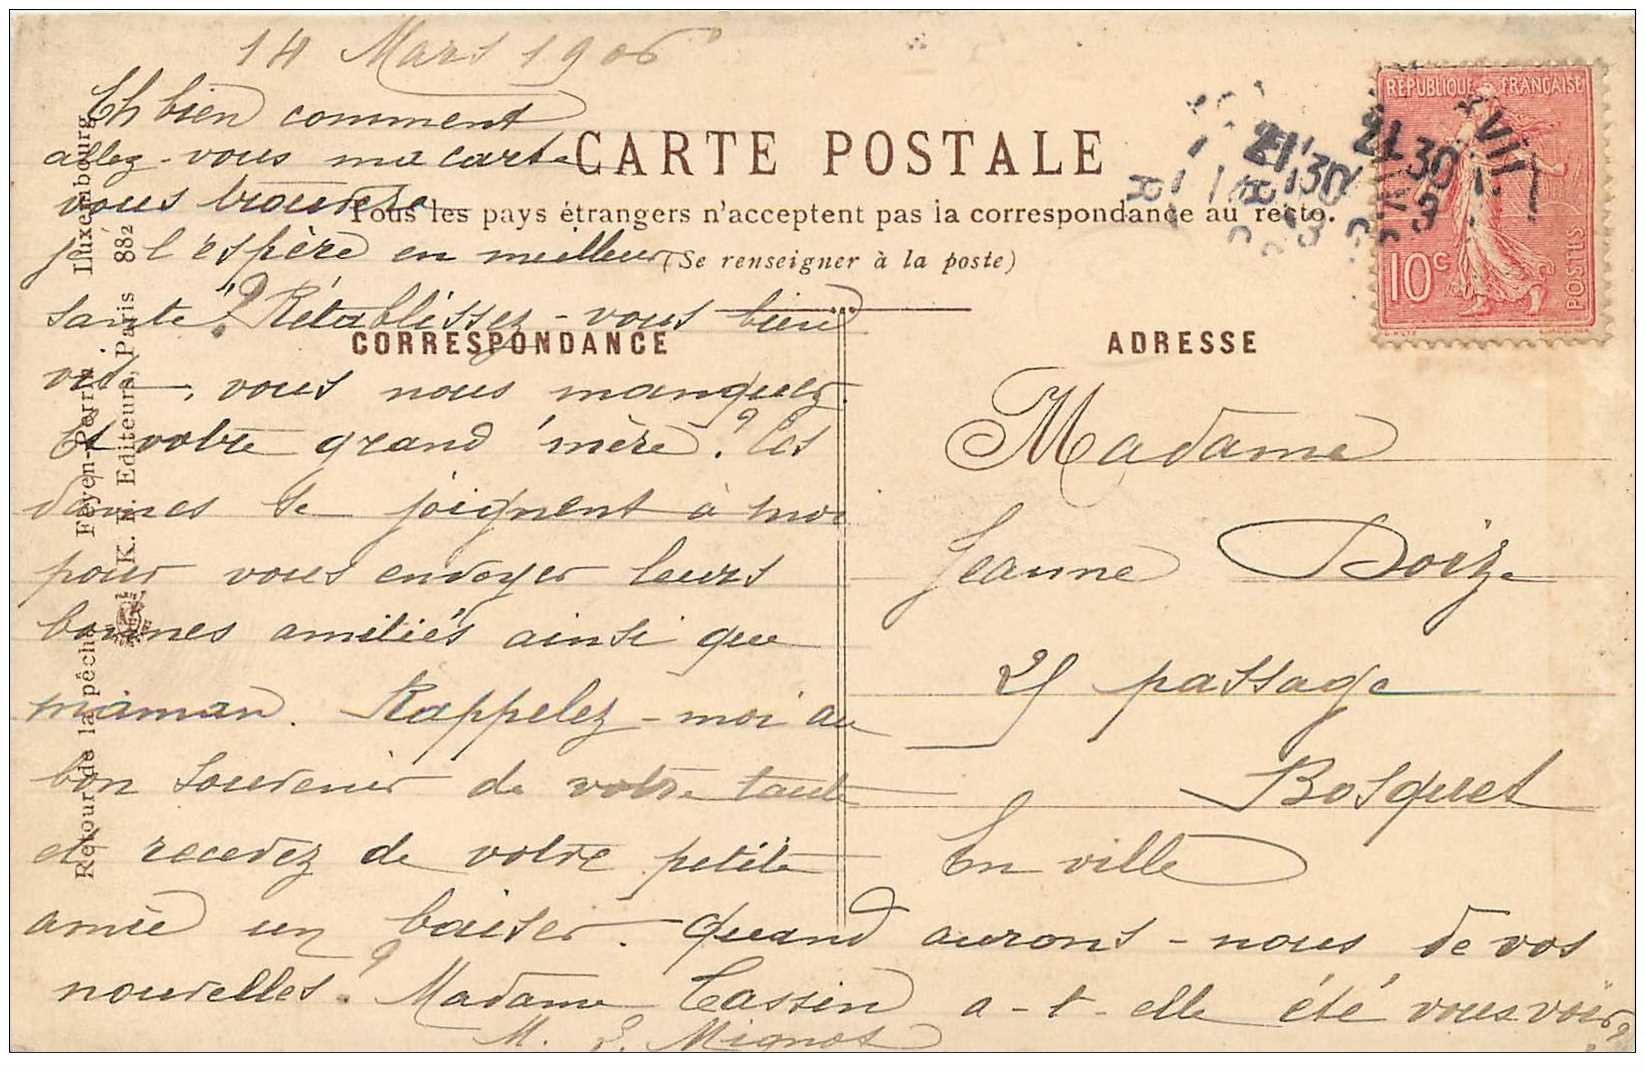 14 Mars 1906
Eh bien comment
allez-vous ma carte
vous trouvera
je l'espère en meilleur
santé? Rétablissez-vous bien
vite, vous nous manquez.
Et votre grand'mère? Ces
dames se joignent à moi
pour vous envoyer leurs
bonnes amitiés ainsi que
maman. Rappelez-moi au
bon souvenir de votre tante
et recevez de votre petite
amie un baiser. Quand aurons-nous de vos
nouvelles? Madame Cassin a-t-elle été vous voir?
M. L. Mignot
CARTE POSTALE
Tous les pays étrangers n'acceptent pas la correspondance au recto.
(Se renseigner à la poste)
CORRESPONDANCE
ADRESSE
RÉPUBLIQUE FRANÇAISE
10c
POSTES
21 30
21 30
VII
Madame
Jeanne Doize
25 passage
Bosquet
En ville
Luxembourg
Feyen-Perrin
Retour de la pêche
K. F. Editeurs, Paris 882